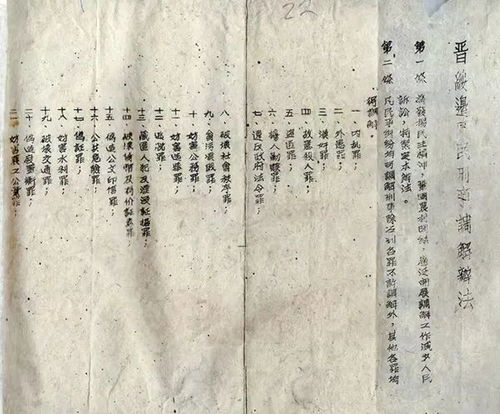 22
晋綏边区民刑事調解办法
第一条 為發揚民主精神，鞏固農村团結，廣泛开展調解工作減少人民
訴訟，特製定本办法。
第二条 凡民事糾紛均可調解刑事除左列各罪不許調解外，其他各罪均
得調解
一 内乱罪；
二 外患罪；
三 漢奸罪；
四 故意殺人罪；
五 盗匪罪；
六 掳人勒贖罪；
七 違反政府法令罪；
八 破壞社會秩序罪；
九 貪污瀆職罪；
十 妨害公務罪；
十一 妨害選舉罪；
十二 逃脱罪；
十三 藏匿人犯及湮沒証據罪；
十四 破壞貨幣及有价証券罪；
十五 偽造公文印信罪；
十六 公共危險罪；
十七 偽証罪；
十八 妨害水利罪；
十九 破壞交通罪；
二十 偽造度量衡罪；
二一 妨害農工公業罪；